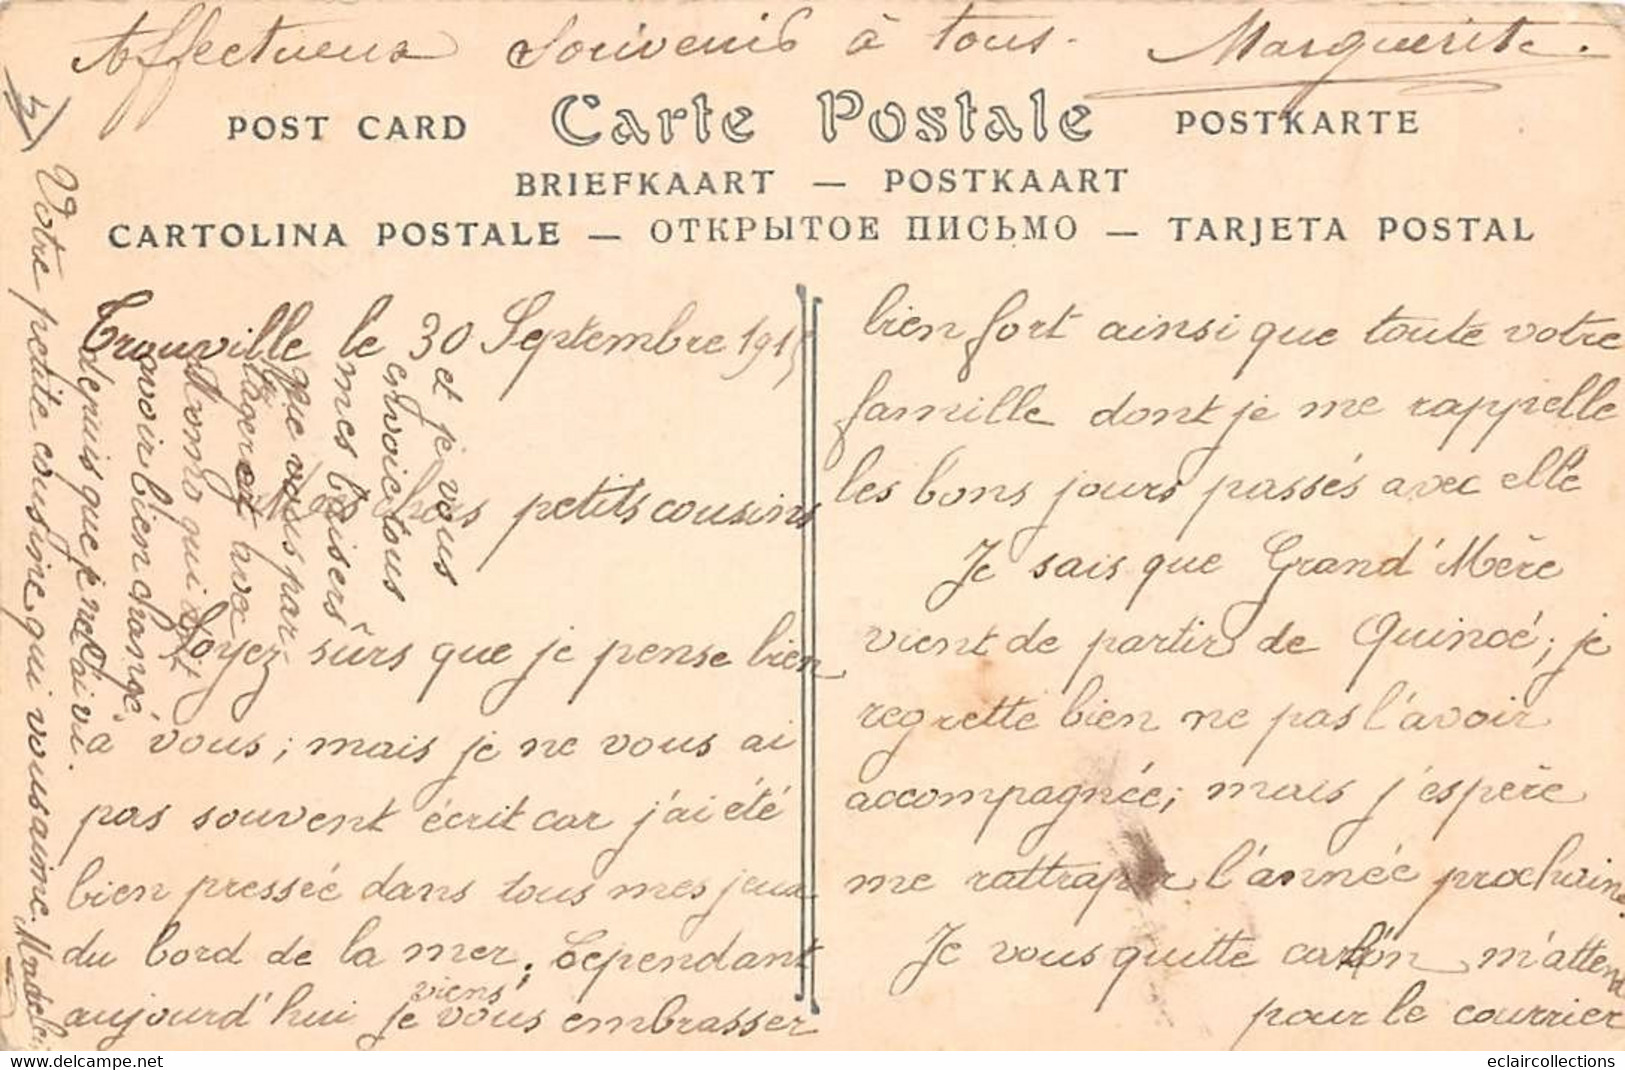 Affectueux Souvenir à tous. Marguerite.
POST CARD Carte Postale POSTKARTE
BRIEFKAART — POSTKAART
CARTOLINA POSTALE — ОТКРЫТОЕ ПИСЬМО — TARJETA POSTAL
Trouville le 30 Septembre 1915
Mes chers petits cousins
Soyez sûrs que je pense bien
à vous; mais je ne vous ai
pas souvent écrit car j'ai été
bien pressée dans tous mes jeux
du bord de la mer. Cependant
aujourd'hui je viens vous embrasser
bien fort ainsi que toute votre
famille dont je me rappelle
les bons jours passés avec elle
Je sais que Grand'Mère
vient de partir de Quincé; je
regrette bien ne pas l'avoir
accompagnée; mais j'espère
me rattraper l'année prochaine.
Je vous quitte car l'on m'attend
pour le courrier
et je vous
envoie tous
mes baisers
que vous par
tagerez avec
Tonio qui doit
avoir bien changé,
depuis que je ne l'ai vu.
Votre petite cousine qui vous aime. Madeleine
eclaircollections